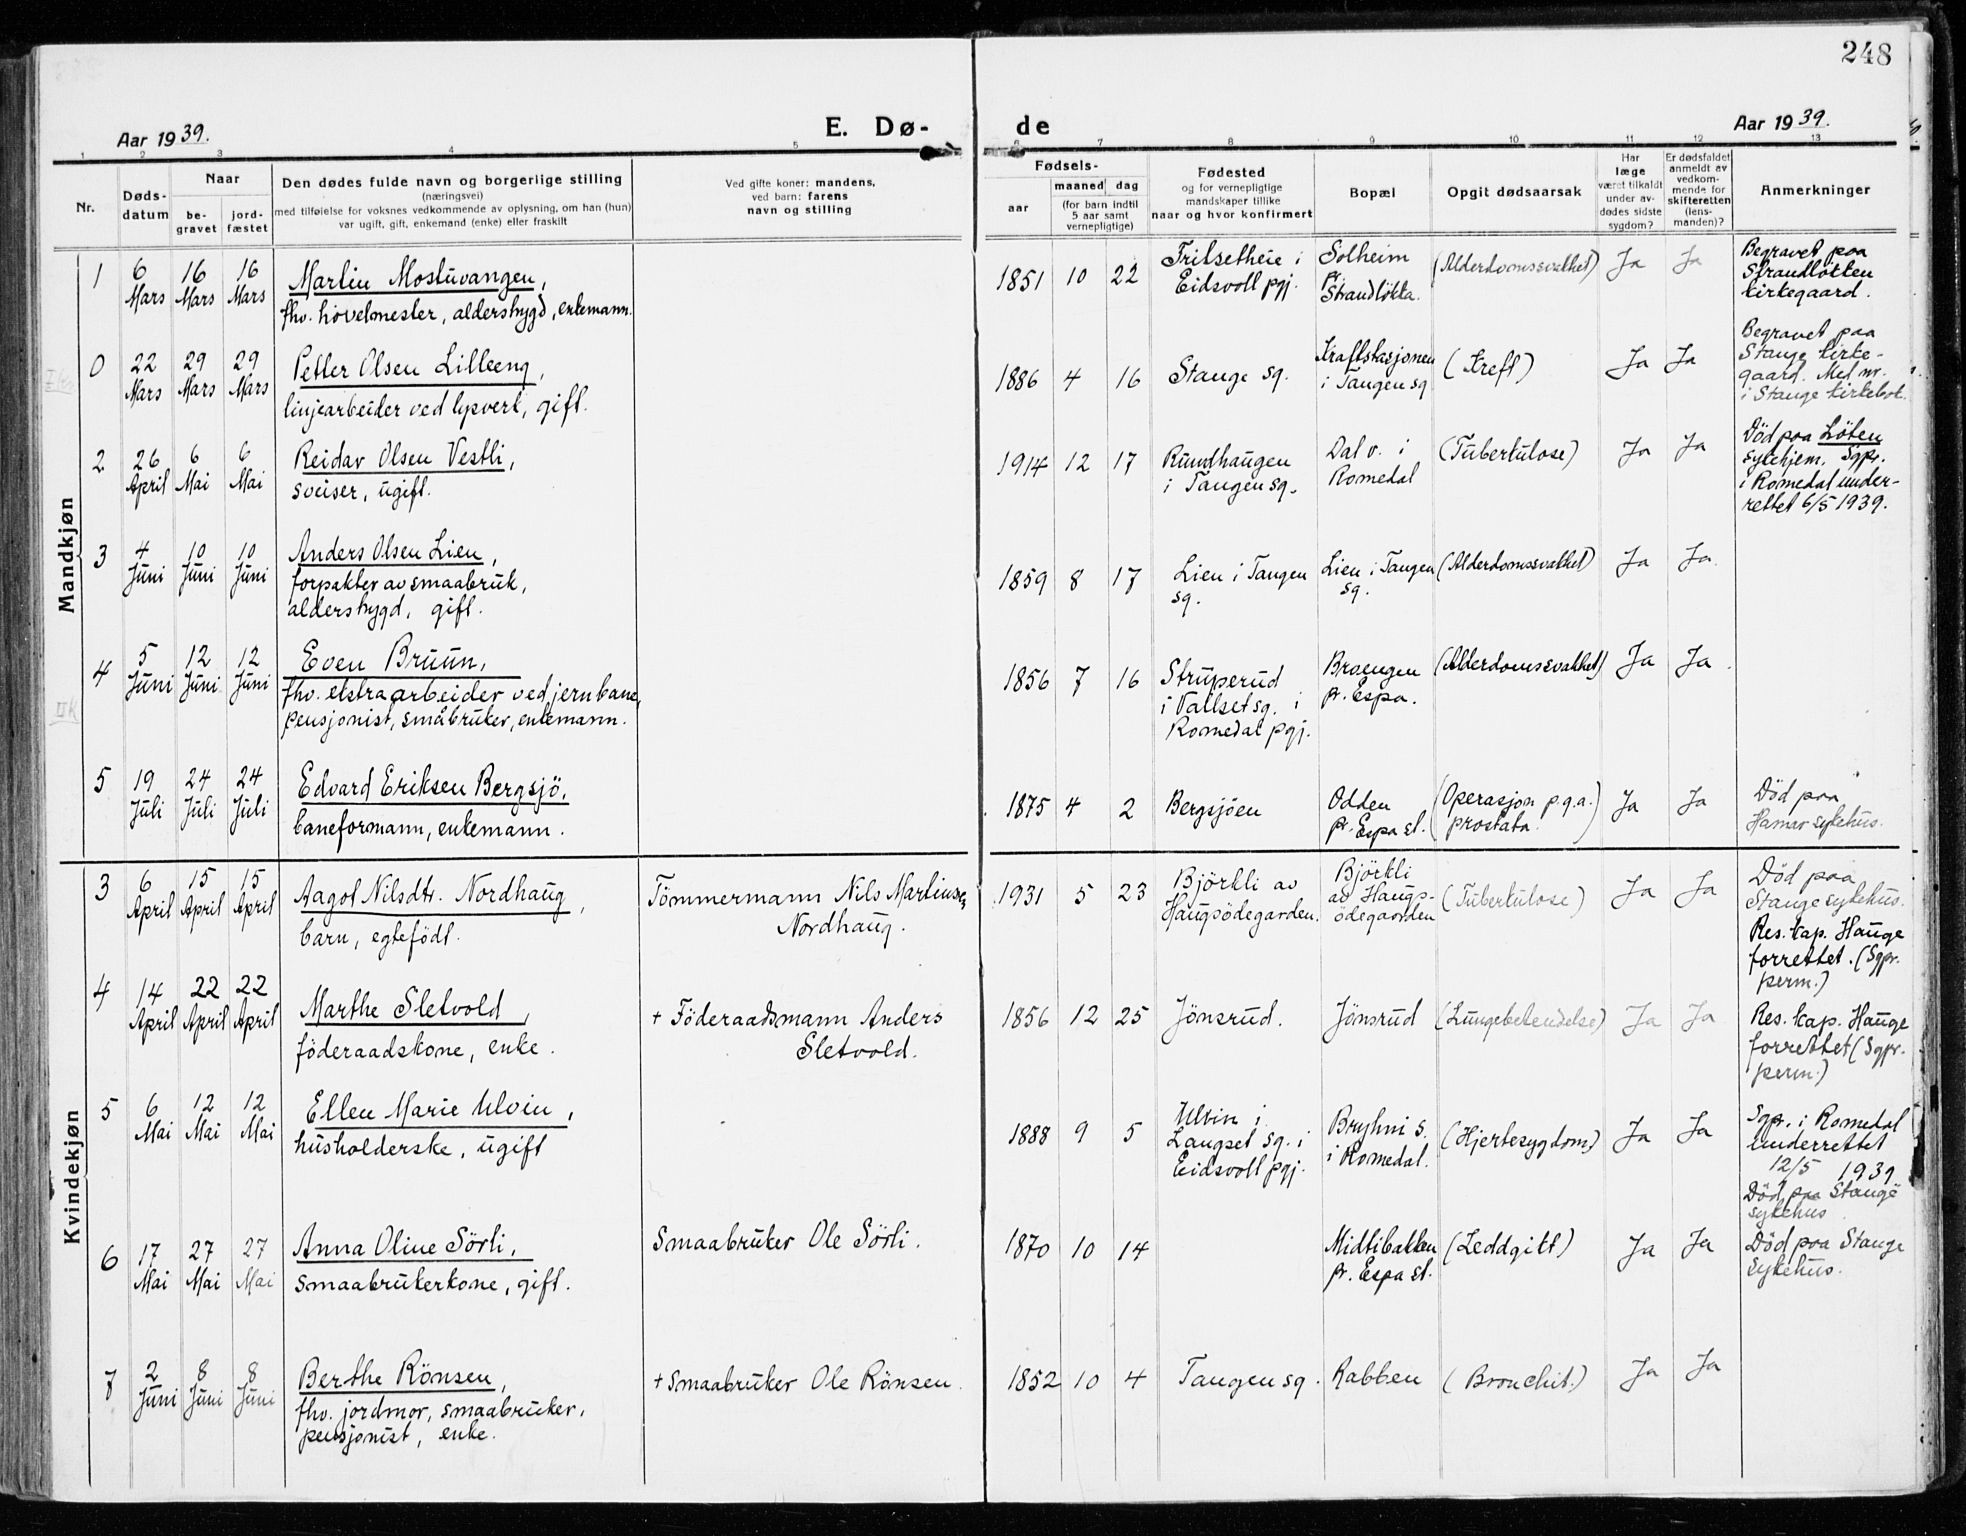 248
Aar 1939.
E. Dø-
de
Aar 1939.
1 2 3 4 5 6 7 8 9 10 11 12 13
Nr.
Døds-
datum
Naar
be-
gravet
jord-
fæstet
Den dødes fulde navn og borgerlige stilling
(næringsvei)
med tilføielse for voksnes vedkommende av oplysning, om han (hun)
var ugift, gift, enkemand (enke) eller fraskilt
Ved gifte koner: mandens,
ved barn: farens
navn og stilling
Fødsels-
aar
maaned dag
(for barn indtil
5 aar samt
vernepligtige)
Fødested
og for vernepligtige
mandskaper tillike
naar og hvor konfirmert
Bopæl
Opgit dødsaarsak
Har
læge
været tilkaldt
under av-
dødes sidste
sygdom?
Er dødsfaldet
anmeldt av
vedkom-
mende for
skifteretten
(lens-
manden)?
Anmerkninger
Mandkjøn
1
6
Mars
16
Mars
16
Mars
Martin Mostuvangen,
fhv. hovelmester, alderstrygd, enkemann.
1851 10 22
Fritsetheie i
Eidsvoll pgj.
Solheim
pr.
Strandløkka.
(Alderdomssvakhet)
Ja
Ja
Begravet paa
Strandløkken
kirkegaard.
0
22
Mars
29
Mars
29
Mars
Petter Olsen Lilleeng,
linjearbeider ved lysverk, gift.
1886 4 16
Stange sg.
Kraftstasjonen
i Tangen sg
(Kreft)
Ja
Ja
Begravet paa
Stange kirke-
gaard. Med nr.
i Stange kirkebok.
2
26
April
6
Mai
6
Mai
Reidar Olsen Vestli,
sveiser, ugift.
1914 12 17
Rundhaugen
i Tangen sg.
Dal v. i
Romedal
(Tuberkulose)
Ja
Ja
Død paa Løten
sykehjem. Sgpr.
i Romedal under-
rettet 6/5 1939.
3
4
Juni
10
Juni
10
Juni
Anders Olsen Lien,
forpakter av smaabruk,
alderstrygd, gift.
1859 8 17
Lien i Tangen
sg.
Lien i Tangen
sg.
(Alderdomssvakhet)
Ja
Ja.
4
5
Juni
12
Juni
12
Juni
Even Bruun,
fhv. ekstraarbeider ved jernbane,
pensjonist, småbruker, enkemann.
1856 7 16
Struperud
i Vallset sg. i
Romedal pgj.
Braengen
pr. Espa.
(Alderdomssvakhet)
Ja
Ja
5
19
Juli
24
Juli
24
Juli
Edvard Eriksen Bergsjö,
baneformann, enkemann.
1875 4 2
Bergsjöen
Odden
pr. Espa st.
(Operasjon p.g.a.
prostata.)
Ja
Ja
Död paa
Hamar sykehus.
Kvindekjøn
3
6
April
15
April
15
April
Aagot Nilsdtr. Nordhaug,
barn, egtefödt.
Tömmermann Nils Martinsen
Nordhaug.
1931 5 23
Björkli av
Haugsödegarden.
Björkli
av Haugs-
ödegaarden
(Tuberkulose)
Ja
Ja
Död paa
Stange sykehus.
Res. kap. Hauge
forrettet. (Sgpr.
perm.)
4
14
April
22
April
22
April
Marthe Sletvold,
föderaadskone, enke.
+ Föderaadsmann Anders
Sletvold.
1856 12 25
Jönsrud.
Jönsrud
(Lungebetendelse)
Ja
Ja
Res. kap. Hauge
forrettet (Sgpr.
perm.)
5
6
Mai
12
Mai
12
Mai
Ellen Marie Ulvin,
husholderske, ugift
1888 9 5
Ulvin i
Langset sg. i
Eidsvoll pgj.
Bryhni s.
i Romedal.
(Hjertesygdom)
Ja
Ja
Sgpr. i Romedal
underrettet
12/5 1939
Död paa Stange
sykehus
6
17
Mai
27
Mai
27
Mai
Anna Oline Sörli,
smaabrukerkone, gift.
Smaabruker Ole Sörli.
1870 10 14
Midtibakken
pr. Espa st.
(Leddgikt)
Ja
Ja
Död paa Stange
Sykehus.
7
2
Juni
8
Juni
8
Juni
Berthe Rönsen,
fhv. jordmor, smaabruker,
pensjonist, enke.
+ Smaabruker Ole Rönsen.
1852 10 4
Tangen sg.
Rabben
(Bronchit.)
Ja
Ja